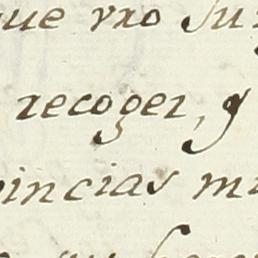 ue vro Su
recoger, y
incias m